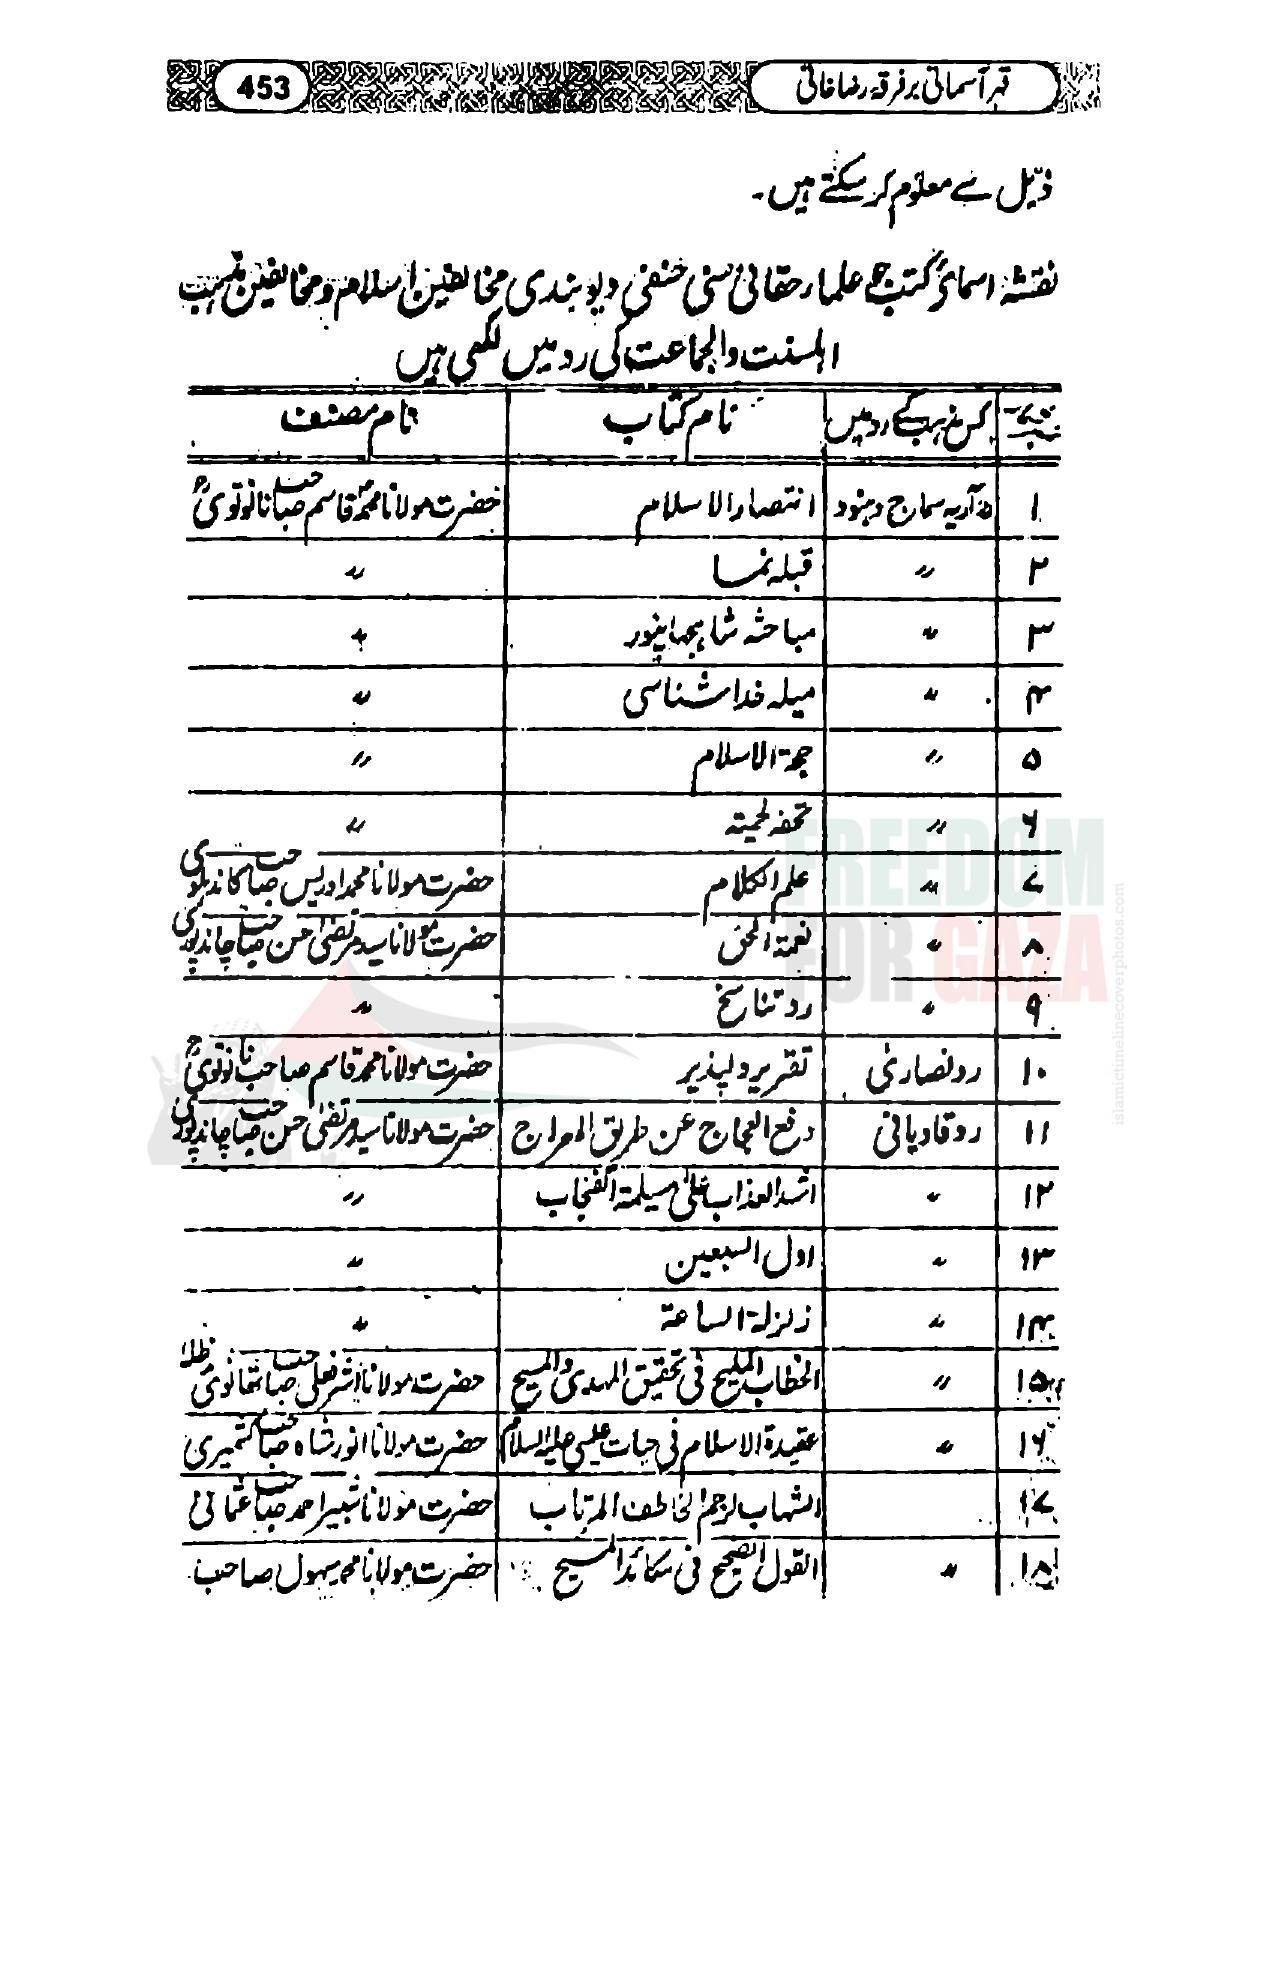 453
قہر آسمانی بر فرقہ رضاخانی
ذیل سے معلوم کر سکتے ہیں۔
نقشہ اسمائے کتب جو علماء حقانی سنی حنفی دیوبندی مخالفین اسلام و مخالفین مذہب
اہلسنت والجماعت کی رد میں لکھی ہیں
کس مذہب کے رد میں نام کتاب نام مصنف
۱ آریہ سماج و ہنود انتصار الاسلام حضرت مولانا محمد قاسم صاحب نانوتویؒ
۲ 〃 قبلہ نما 〃
۳ 〃 مباحثہ شاہجہانپور 〃
۴ 〃 میلہ خداشناسی 〃
۵ 〃 حجۃ الاسلام 〃
۶ 〃 تحفہ لحمیہ 〃
۷ 〃 علم الکلام حضرت مولانا محمد ادریس صاحب کاندہلوی
۸ 〃 حضرت مولانا سید مرتضیٰ حسن صاحب چاندپوری
۹ 〃 رد تناسخ 〃
۱۰ رد نصاریٰ تقریر دلپذیر حضرت مولانا محمد قاسم صاحب نانوتویؒ
۱۱ رد قادیانی دفع العجاج عن طریق المعراج حضرت مولانا سید مرتضیٰ حسن صاحب چاندپوری
۱۲ 〃 اشد العذاب علیٰ مسیلمۃ الفنجاب 〃
۱۳ 〃 اول السبعین 〃
۱۴ 〃 زلزلۃ الساعۃ 〃
۱۵ 〃 الخطاب الملیح فی تحقیق المہدی والمسیح حضرت مولانا اشرفعلی صاحب تھانوی مدظلہ
۱۶ 〃 عقیدۃ الاسلام فی حیات عیسیٰ علیہ السلام حضرت مولانا انور شاہ صاحب کشمیری
۱۷ الشہاب لرجم الخاطف المرتاب حضرت مولانا شبیر احمد صاحب عثمانی
۱۸ 〃 القول الصحیح فی مکائد المسیح حضرت مولانا محمد سہول صاحب
FREEDOM
FOR GAZA
islamictimelinecoverphotos.com